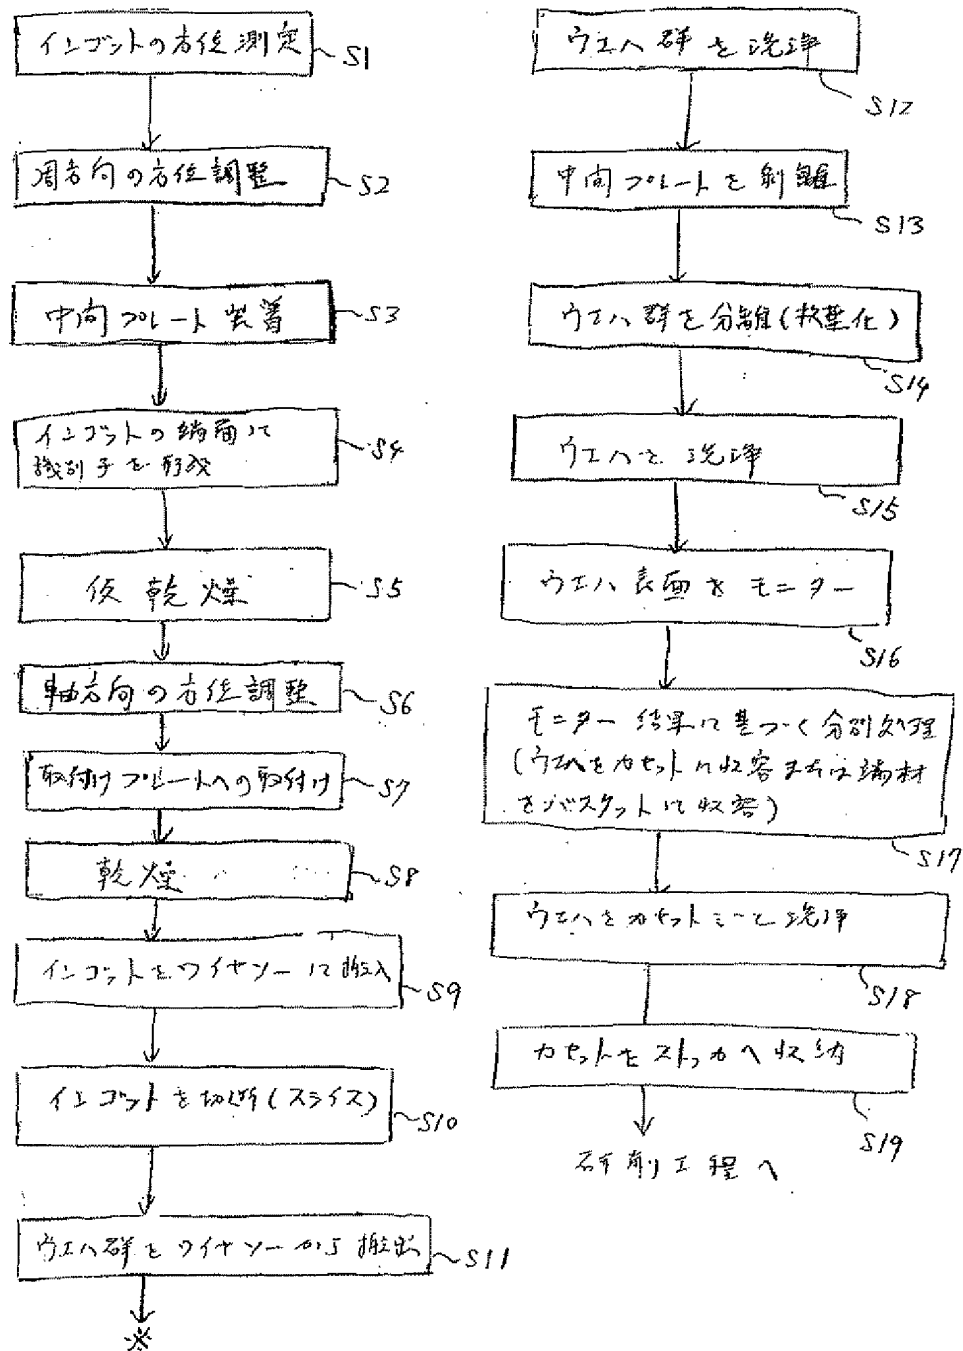 インゴットの方位測定 S1
周方向の方位調整 S2
中間プレート装着 S3
インゴットの端面に
識別子を形成 S4
仮乾燥 S5
軸方向の方位調整 S6
取付けプレートへの取付け S7
乾燥 S8
インゴットをワイヤソーに搬入 S9
インゴットを切断(スライス) S10
ウエハ群をワイヤソーから搬出 S11
※
ウエハ群を洗浄
S12
中間プレートを剥離
S13
ウエハ群を分離(枚葉化)
S14
ウエハを洗浄
S15
ウエハ表面をモニター
S16
モニター結果に基づく分別処理
(ウエハをカセットに収容または端材
をバスケットに収容)
S17
ウエハをカセットごと洗浄
S18
カセットをストッカへ収納
S19
研削工程へ